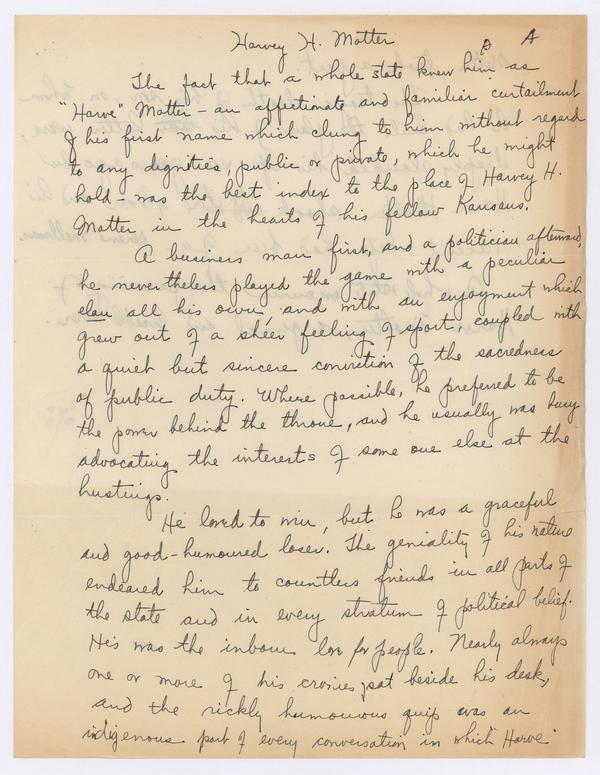 Harvey H. Motter A A
The fact that a whole state knew him as
"Harve" Motter - an affectionate and familiar curtailment
of his first name which clung to him without regard
to any dignities, public or private, which he might
hold - was the best index to the place of Harvey H.
Motter in the hearts of his fellow Kansans.
A business man first, and a politician afterward,
he nevertheless played the game with a peculiar
elan all his own, and with an enjoyment which
grew out of a sheer feeling of sport, coupled with
a quiet but sincere conviction of the sacredness
of public duty. Where possible, he preferred to be
the power behind the throne, and he usually was busy
advocating the interests of some one else at the
hustings.
He loved to win, but he was a graceful
and good-humoured loser. The geniality of his nature
endeared him to countless friends in all parts of
the state and in every stratum of political belief.
His was the inborn love for people. Nearly always
one or more of his cronies sat beside his desk,
and the rickly humourous quip was an
indigenous part of every conversation in which "Harve"